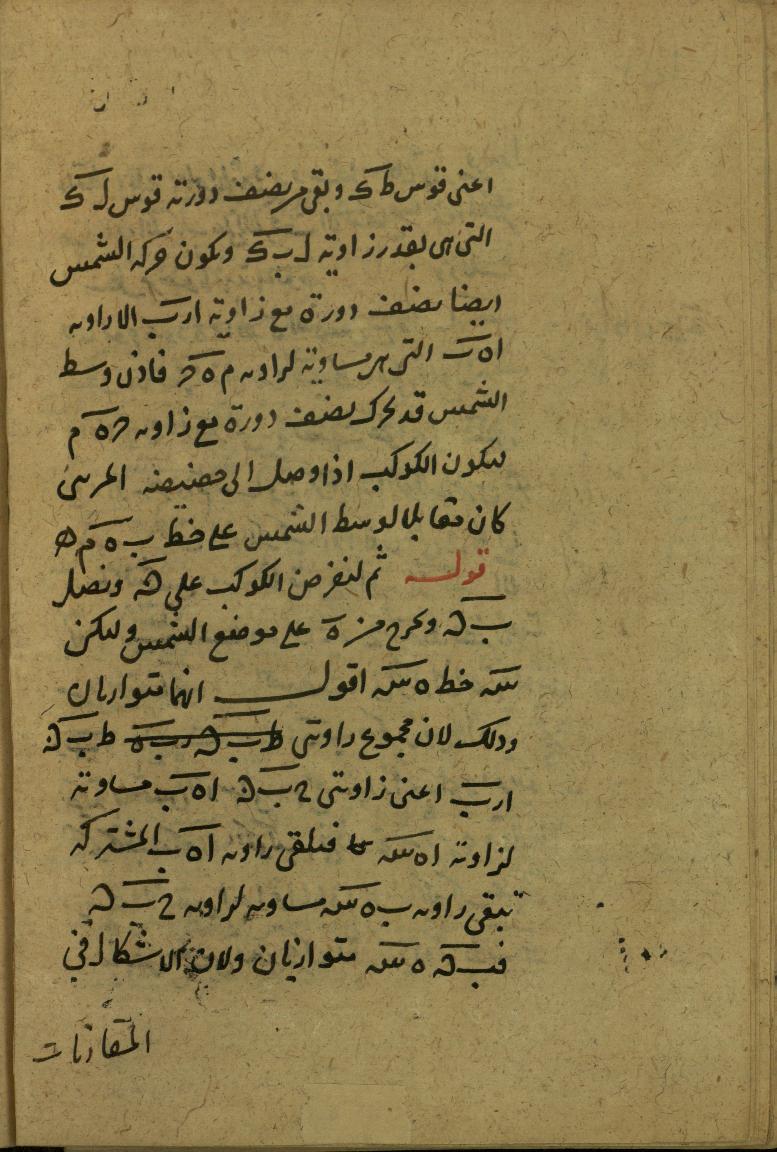 اعنى قوس ط ك وبقى من نصف دورته قوس ل ك
التى هى بقدر زاوية ل ب ك وتكون حركة الشمس
ايضا نصف دورة مع زاوية ا ر ب الا زاوية
ا ه ب التى هى مساوية لزاوية م ه ح فاذن وسط
الشمس قد تحرك نصف دورة مع زاوية ح ه م
فيكون الكوكب اذا وصل الى حضيضه المرئى
كان مقابلا لوسط الشمس على خط ب ه م
قوله ثم لنفرض الكوكب على ونصل
ب ويخرج من ه على موضع الشمس وليكن
سه خط ه سه اقول انهما متوازيان
وذلك لان مجموع زاوتى ط ب
ا ر ب اعنى زاوتى ح ب ا ه ب مساوية
لزاوية ا ه سه فيلقى زاوية ا ه ب المشتركة
تبقى زاوية ب ه سه مساوية لزاوية ح ب
فب ه سه متوازيان ولان الاشكال فى
المقارنات